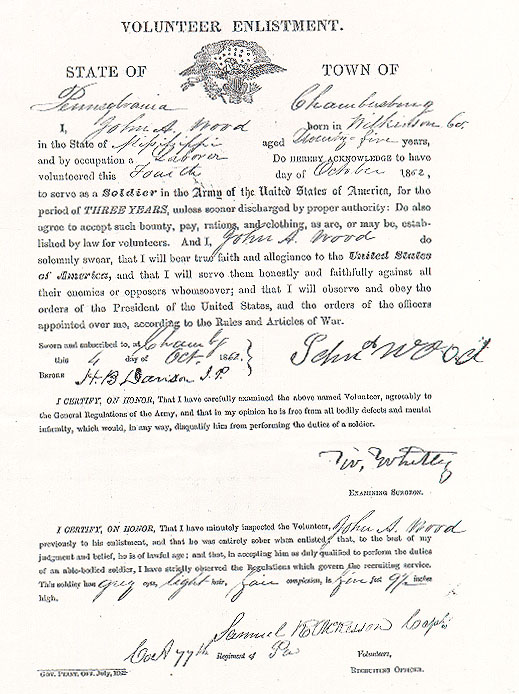 VOLUNTEER ENLISTMENT.
STATE OF TOWN OF
Pennsylvania Chambersburg
I, John A. Wood born in Wilkinson Co.
in the State of Mississippi aged Twenty-five years,
and by occupation a Laborer Do HEREBY ACKNOWLEDGE to have
volunteered this Fourth day of October 1862,
to serve as a Soldier in the Army of the United States of America, for the
period of THREE YEARS, unless sooner discharged by proper authority: Do also
agree to accept such bounty, pay, rations, and clothing, as are, or may be, estab-
lished by law for volunteers. And I, John A. Wood do
solemnly swear, that I will bear true faith and allegiance to the United States
of America, and that I will serve them honestly and faithfully against all
their enemies or opposers whomsoever; and that I will observe and obey the
orders of the President of the United States, and the orders of the officers
appointed over me, according to the Rules and Articles of War.
Sworn and subscribed to, at Chambg
this 4 day of Oct. 1862. John A Wood
BEFORE H. B. Davison J. P.
I CERTIFY, ON HONOR, That I have carefully examined the above named Volunteer, agreeably to
the General Regulations of the Army, and that in my opinion he is free from all bodily defects and mental
infirmity, which would, in any way, disqualify him from performing the duties of a soldier.
EXAMINING SURGEON.
I CERTIFY, ON HONOR, That I have minutely inspected the Volunteer, John A. Wood
previously to his enlistment, and that he was entirely sober when enlisted; that, to the best of my
judgment and belief, he is of lawful age; and that, in accepting him as duly qualified to perform the duties
of an able-bodied soldier, I have strictly observed the Regulations which govern the recruiting service.
This soldier has grey eyes, light hair, fair complexion, is five feet 9½ inches
high.
Samuel R. McKesson Capt.
Co A 77th Regiment of Pa Volunteers,
RECRUITING OFFICER.
GOV. PRINT. OFF. July, 1862